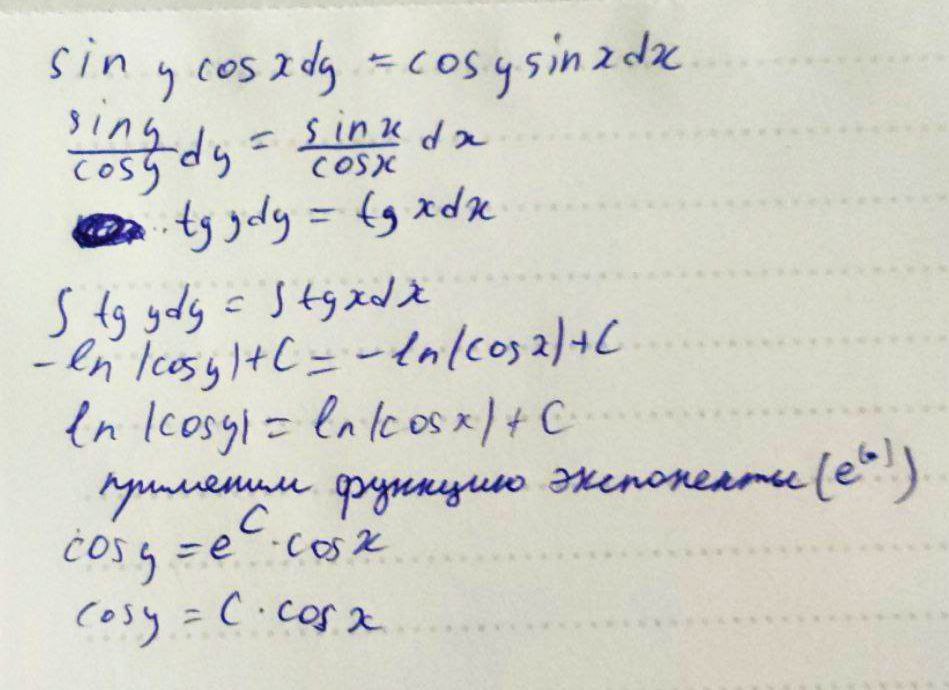 sin y cos x dy = cos y sin x dx
sin y / cos y dy = sin x / cos x dx
tg y dy = tg x dx
∫ tg y dy = ∫ tg x dx
-ln |cos y| + C = -ln |cos x| + C
ln |cos y| = ln |cos x| + C
применим функцию экспоненты (e^(x))
cos y = e^C · cos x
cos y = C · cos x